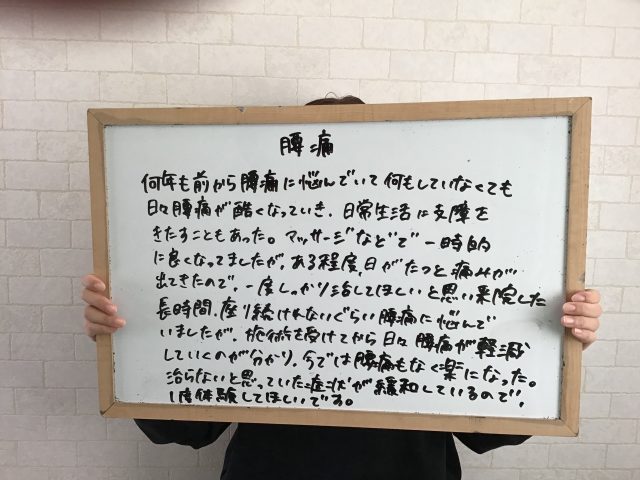 腰痛
何年も前から腰痛に悩んでいて何もしていなくても
日々腰痛が酷くなっていき、日常生活に支障を
きたすこともあった。マッサージなどで一時的
に良くなってましたが、ある程度、日がたつと痛みが
出てきたので、一度しっかり治してほしいと思い来院した
長時間、座り続けれないぐらい腰痛に悩んで
いましたが、施術を受けてから日々腰痛が軽減
していくのが分かり、今では腰痛もなく楽になった。
治らないと思っていた症状が緩和しているので、
1度体験してほしいです。